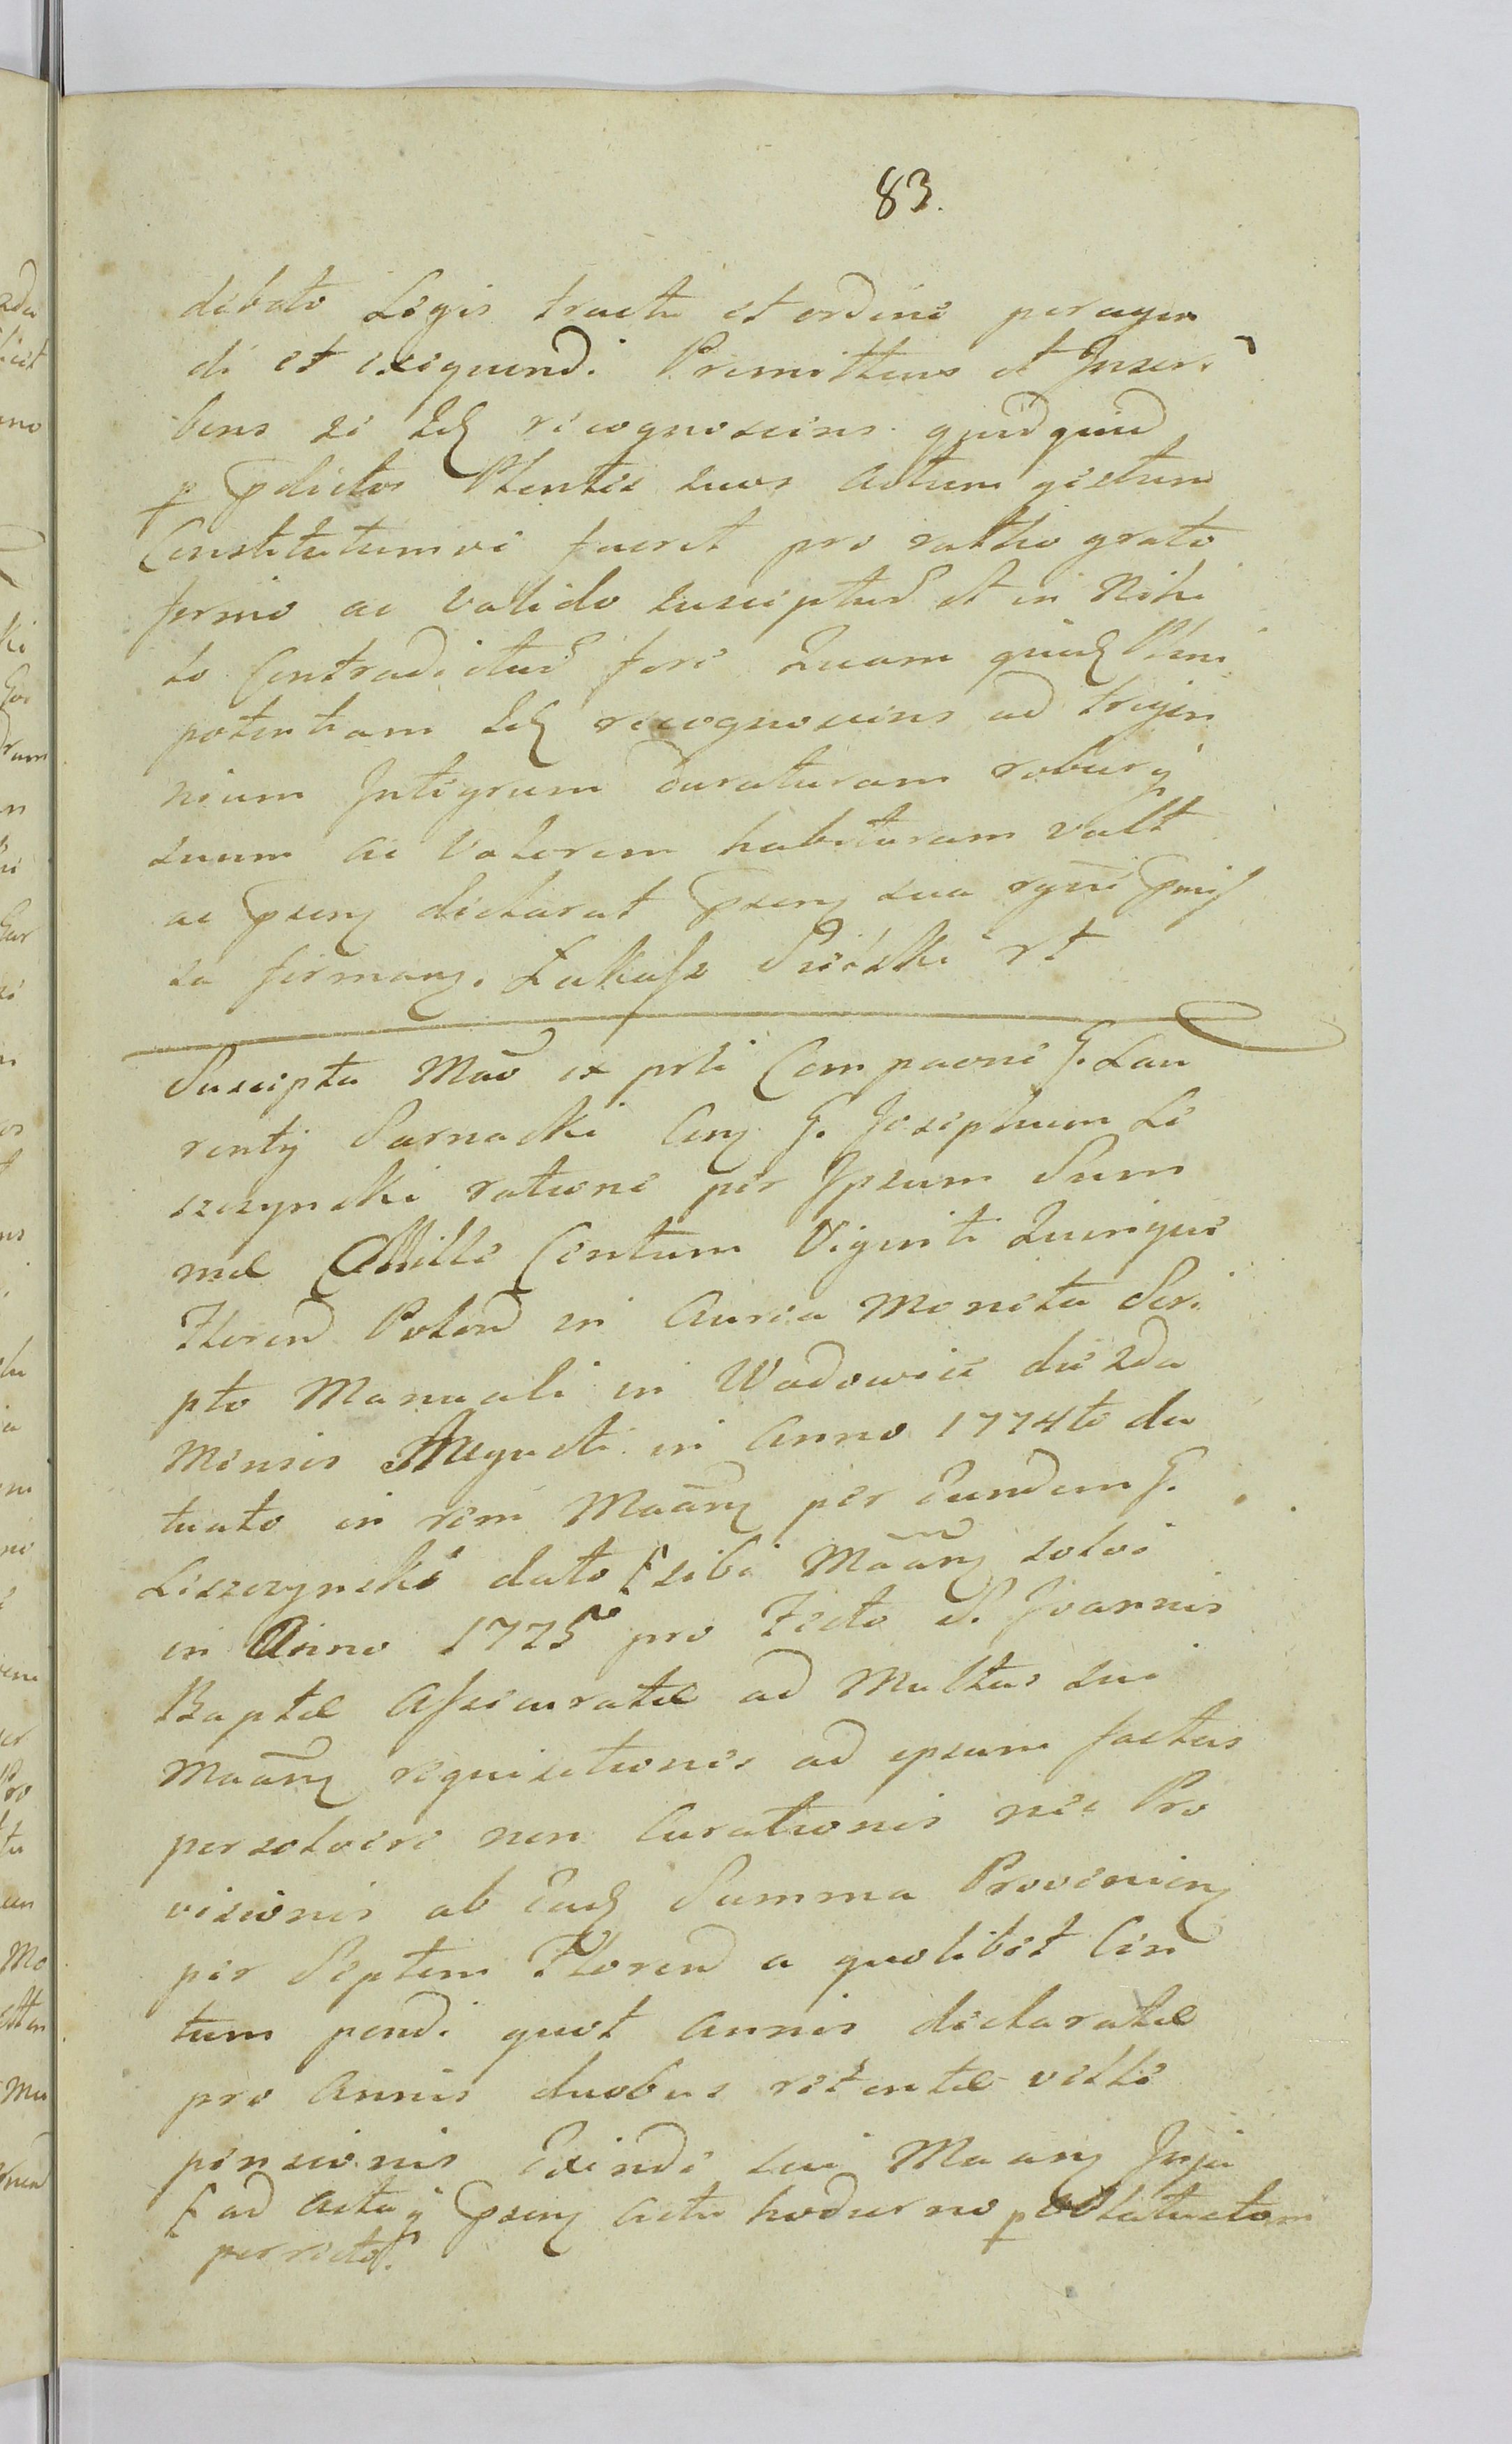 83.
debato Legis tractu et ordine peragen
di et exequendi. Premittens et Inseri
bens se Idq recognoscens quidquid
p pdictos Plentes suos actum gestum
Constitutumve fuerit pro ratho grato
firmo ac valido susceptur et in Nihi
lo Contradictur fore Quam quidq Pleni
potentiam Idq recognoscens ad trigen
nium Integrum duraturam roburq
suum ac Valorem habituram vult
ac psenq declarat psenq sua
sa firmanq. Łukasz rt
Suscepta Mao ex prti Compaone G. Lau
rentij Sarnacki Cinq G. Josephum Le
szczynski ratione per Ipsum Sum
mæ Mille Centum Viginti Quinque
Floren Polon in Aurea Moneta Scri
pto Manuali in Wadowice die 2da
Mensis Augusti in Anno 1774to da
tuato in rem Maanq per Eundem G.
Leszczynski dato [ sibi Maanq solvi
in Anno 1775to pro Festo S. Joannis
Baptæ Assecuratæ ad Multas sui
Maanq requisitiones ad ipsum factas
persolvere non Curationis nec Pro
visionis ab Eadq Summa Provenienq
per Septem Floren a quolibet Cen
tum pendi quot annis declaratæ
pro Annis duobus retentæ velle
pensionis Exinde sui Maanq Inju
[ ad acta psenq actu hodierno p
perrecto.